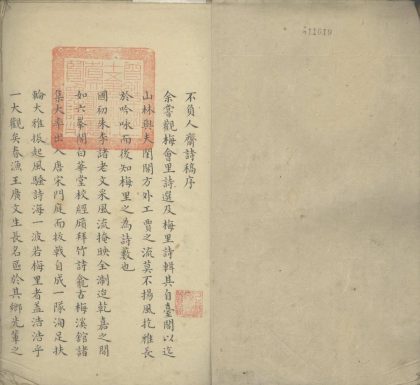 不負人齋詩稿序
余嘗觀梅會里詩選及梅里詩輯其自臺閣以迄
山林與夫閨閣方外工賈之流莫不揚風扢雅長
於吟咏而後知梅里之為詩藪也
國初朱李諸老文采風流掩映全淛迨乾嘉之間
如六峯閣白華堂校經廎拜竹詩龕古梅溪館諸
集大率出入唐宋門庭而拔戟自成一隊洵足扶
輪大雅振起風騷詩海一波若梅里者蓋浩浩乎
一大觀矣春漁王廣文生長名區於其鄉先輩之